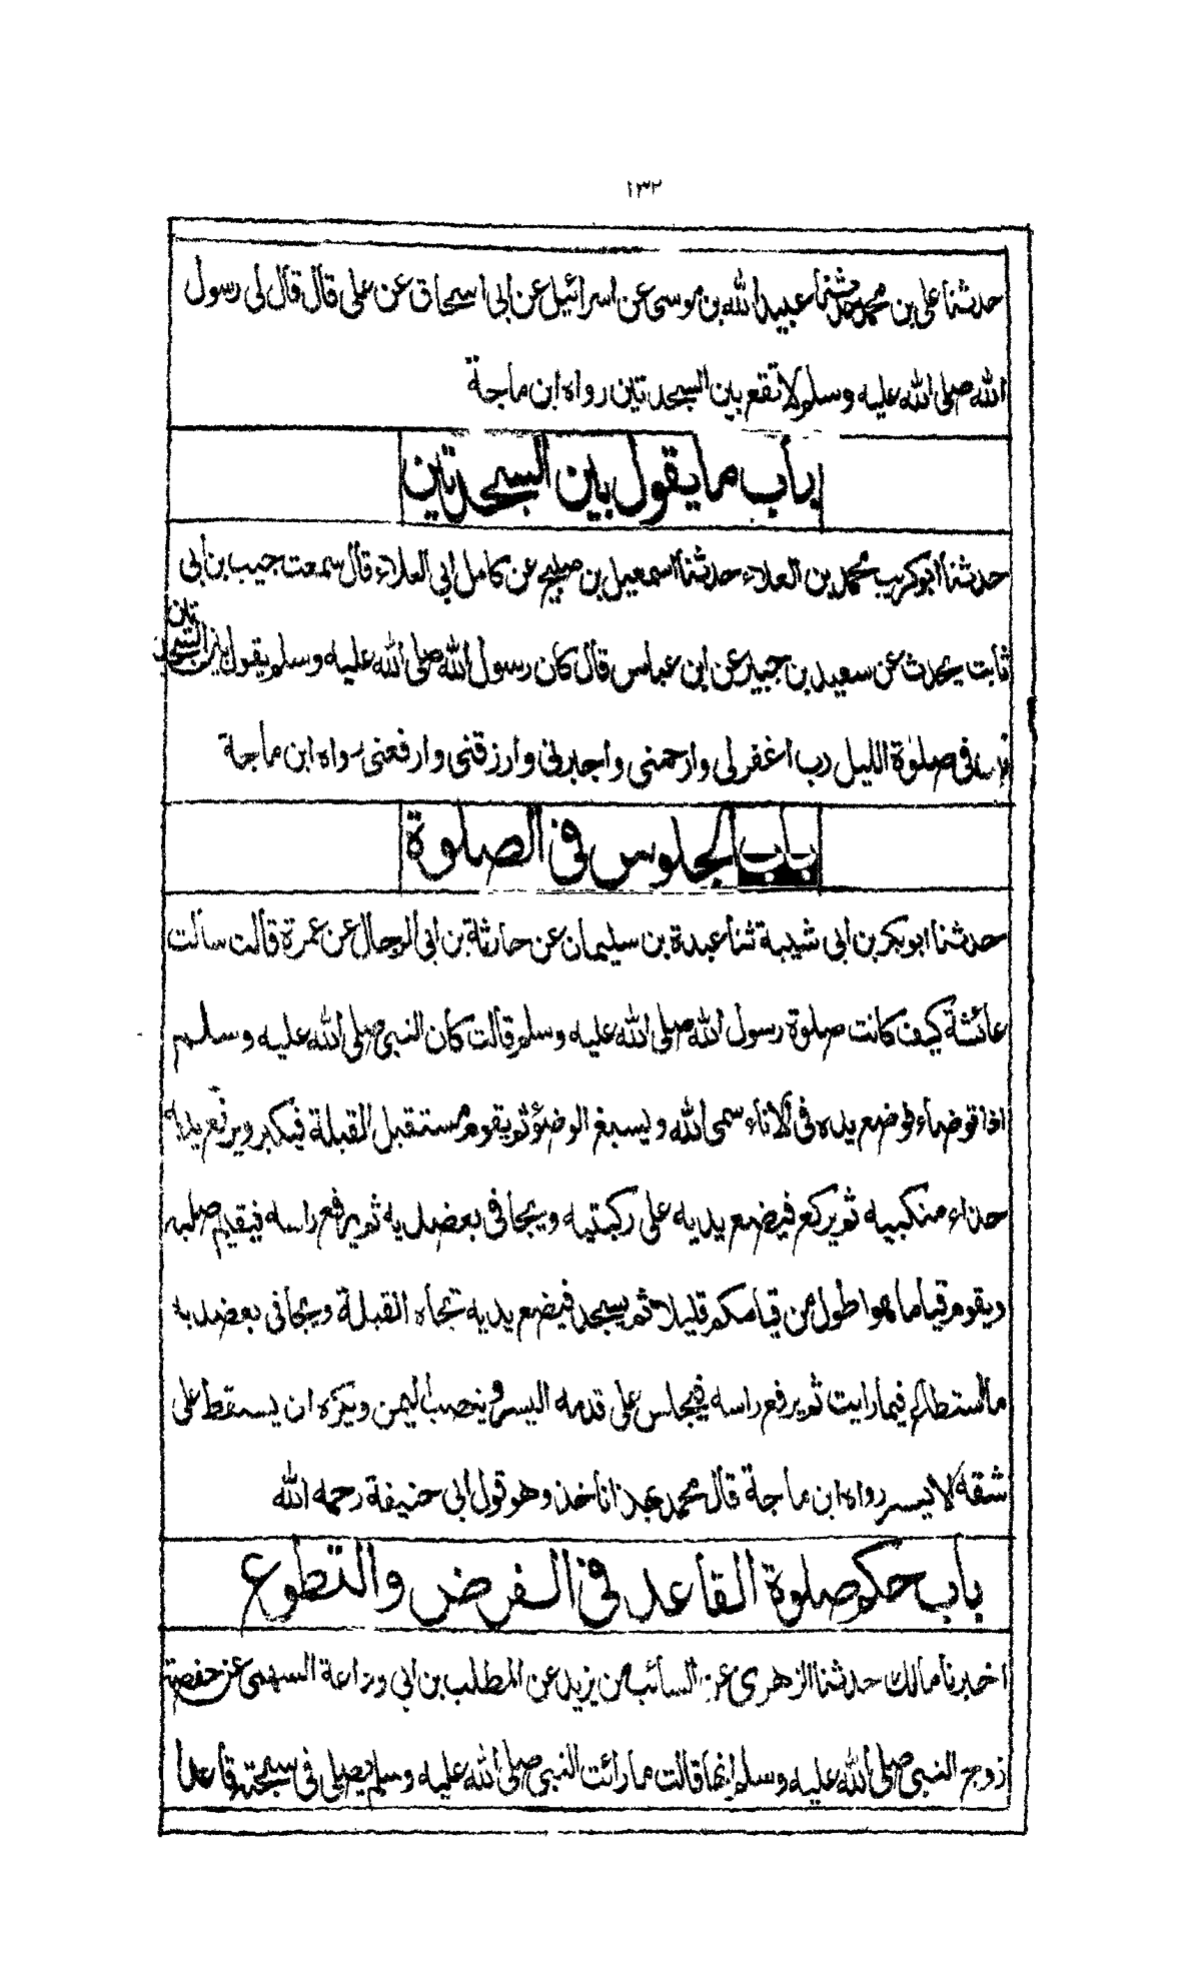 ١٣٢
حدثنا علی بن محمد حدثنا عبید الله بن موسی عن اسرائیل عن ابی اسحاق عن علی قال قال لی رسول
الله صلی الله علیه وسلم لا تقع بین السجدتین رواه ابن ماجة
باب ما یقول بین السجدتین
حدثنا ابو کریب محمد بن العلاء حدثنا اسمعیل بن صبیح عن کامل ابی العلاء قال سمعت حبیب بن ابی
ثابت یحدث عن سعید بن جبیر عن ابن عباس قال کان رسول الله صلی الله علیه وسلم یقول بین السجدتین
فی صلوٰة اللیل رب اغفر لی وارحمنی واجبرنی وارزقنی وارفعنی رواه ابن ماجة
باب الجلوس فی الصلوة
حدثنا ابو بکر بن ابی شیبة ثنا عبدة بن سلیمان عن حارثة بن ابی الرجال عن عمرة قالت سألت
عائشة کیف کانت صلوة رسول الله صلی الله علیه وسلم قالت کان النبی صلی الله علیه وسلم
اذا توضاء فوضع یده فی الاناء سمی الله ویسبغ الوضوء ثم یقوم مستقبل القبلة فیکبر ویرفع یدیه
حذاء منکبیه ثم یرکع فیضع یدیه علی رکبتیه ویجافی بعضدیه ثم یرفع راسه فیقیم صلبه
ویقوم قیاما هو اطول من قیامکم قلیلا ثم یسجد فیضع یدیه تجاه القبلة ویجافی بعضدیه
ما استطاع فیما رایت ثم یرفع راسه فیجلس علی قدمه الیسری وینصب الیمن ویکره ان یسقط علی
شقه الایسر رواه ابن ماجة قال محمد بهذا ناخذ وهو قول ابی حنیفة رحمه الله
باب حکم صلوة القاعد فی الفرض والتطوع
اخبرنا مالك حدثنا الزهری عن السائب بن یزید عن المطلب بن ابی وداعة السهمی عن حفصة
زوج النبی صلی الله علیه وسلم انها قالت ما رائت النبی صلی الله علیه وسلم یصلی فی سبحته قاعدا